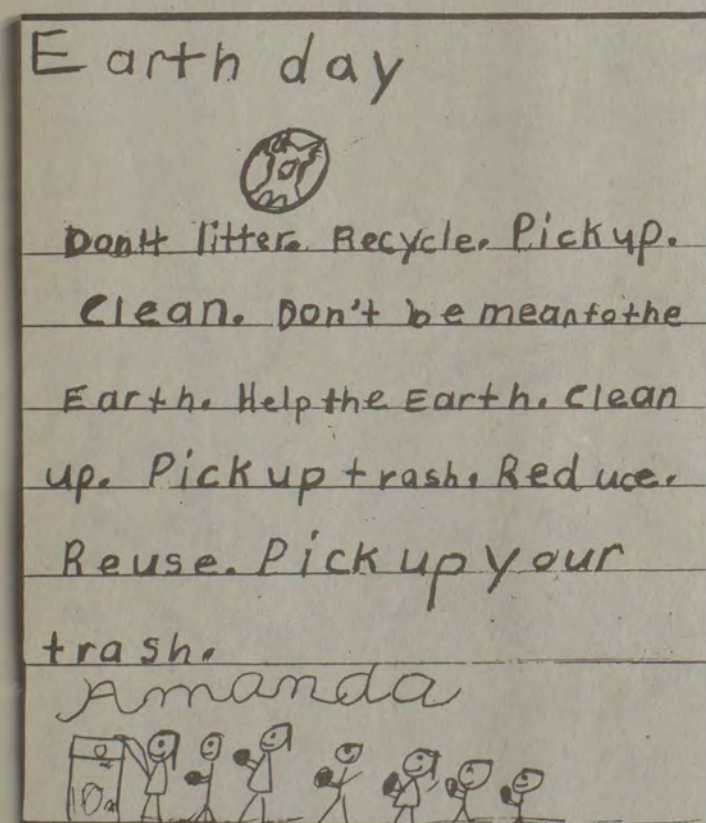 Earth day
Don't litter. Recycle. Pick up.
Clean. Don't be mean to the
Earth. Help the Earth. Clean
up. Pick up trash. Reduce.
Reuse. Pick up your
trash.
Amanda